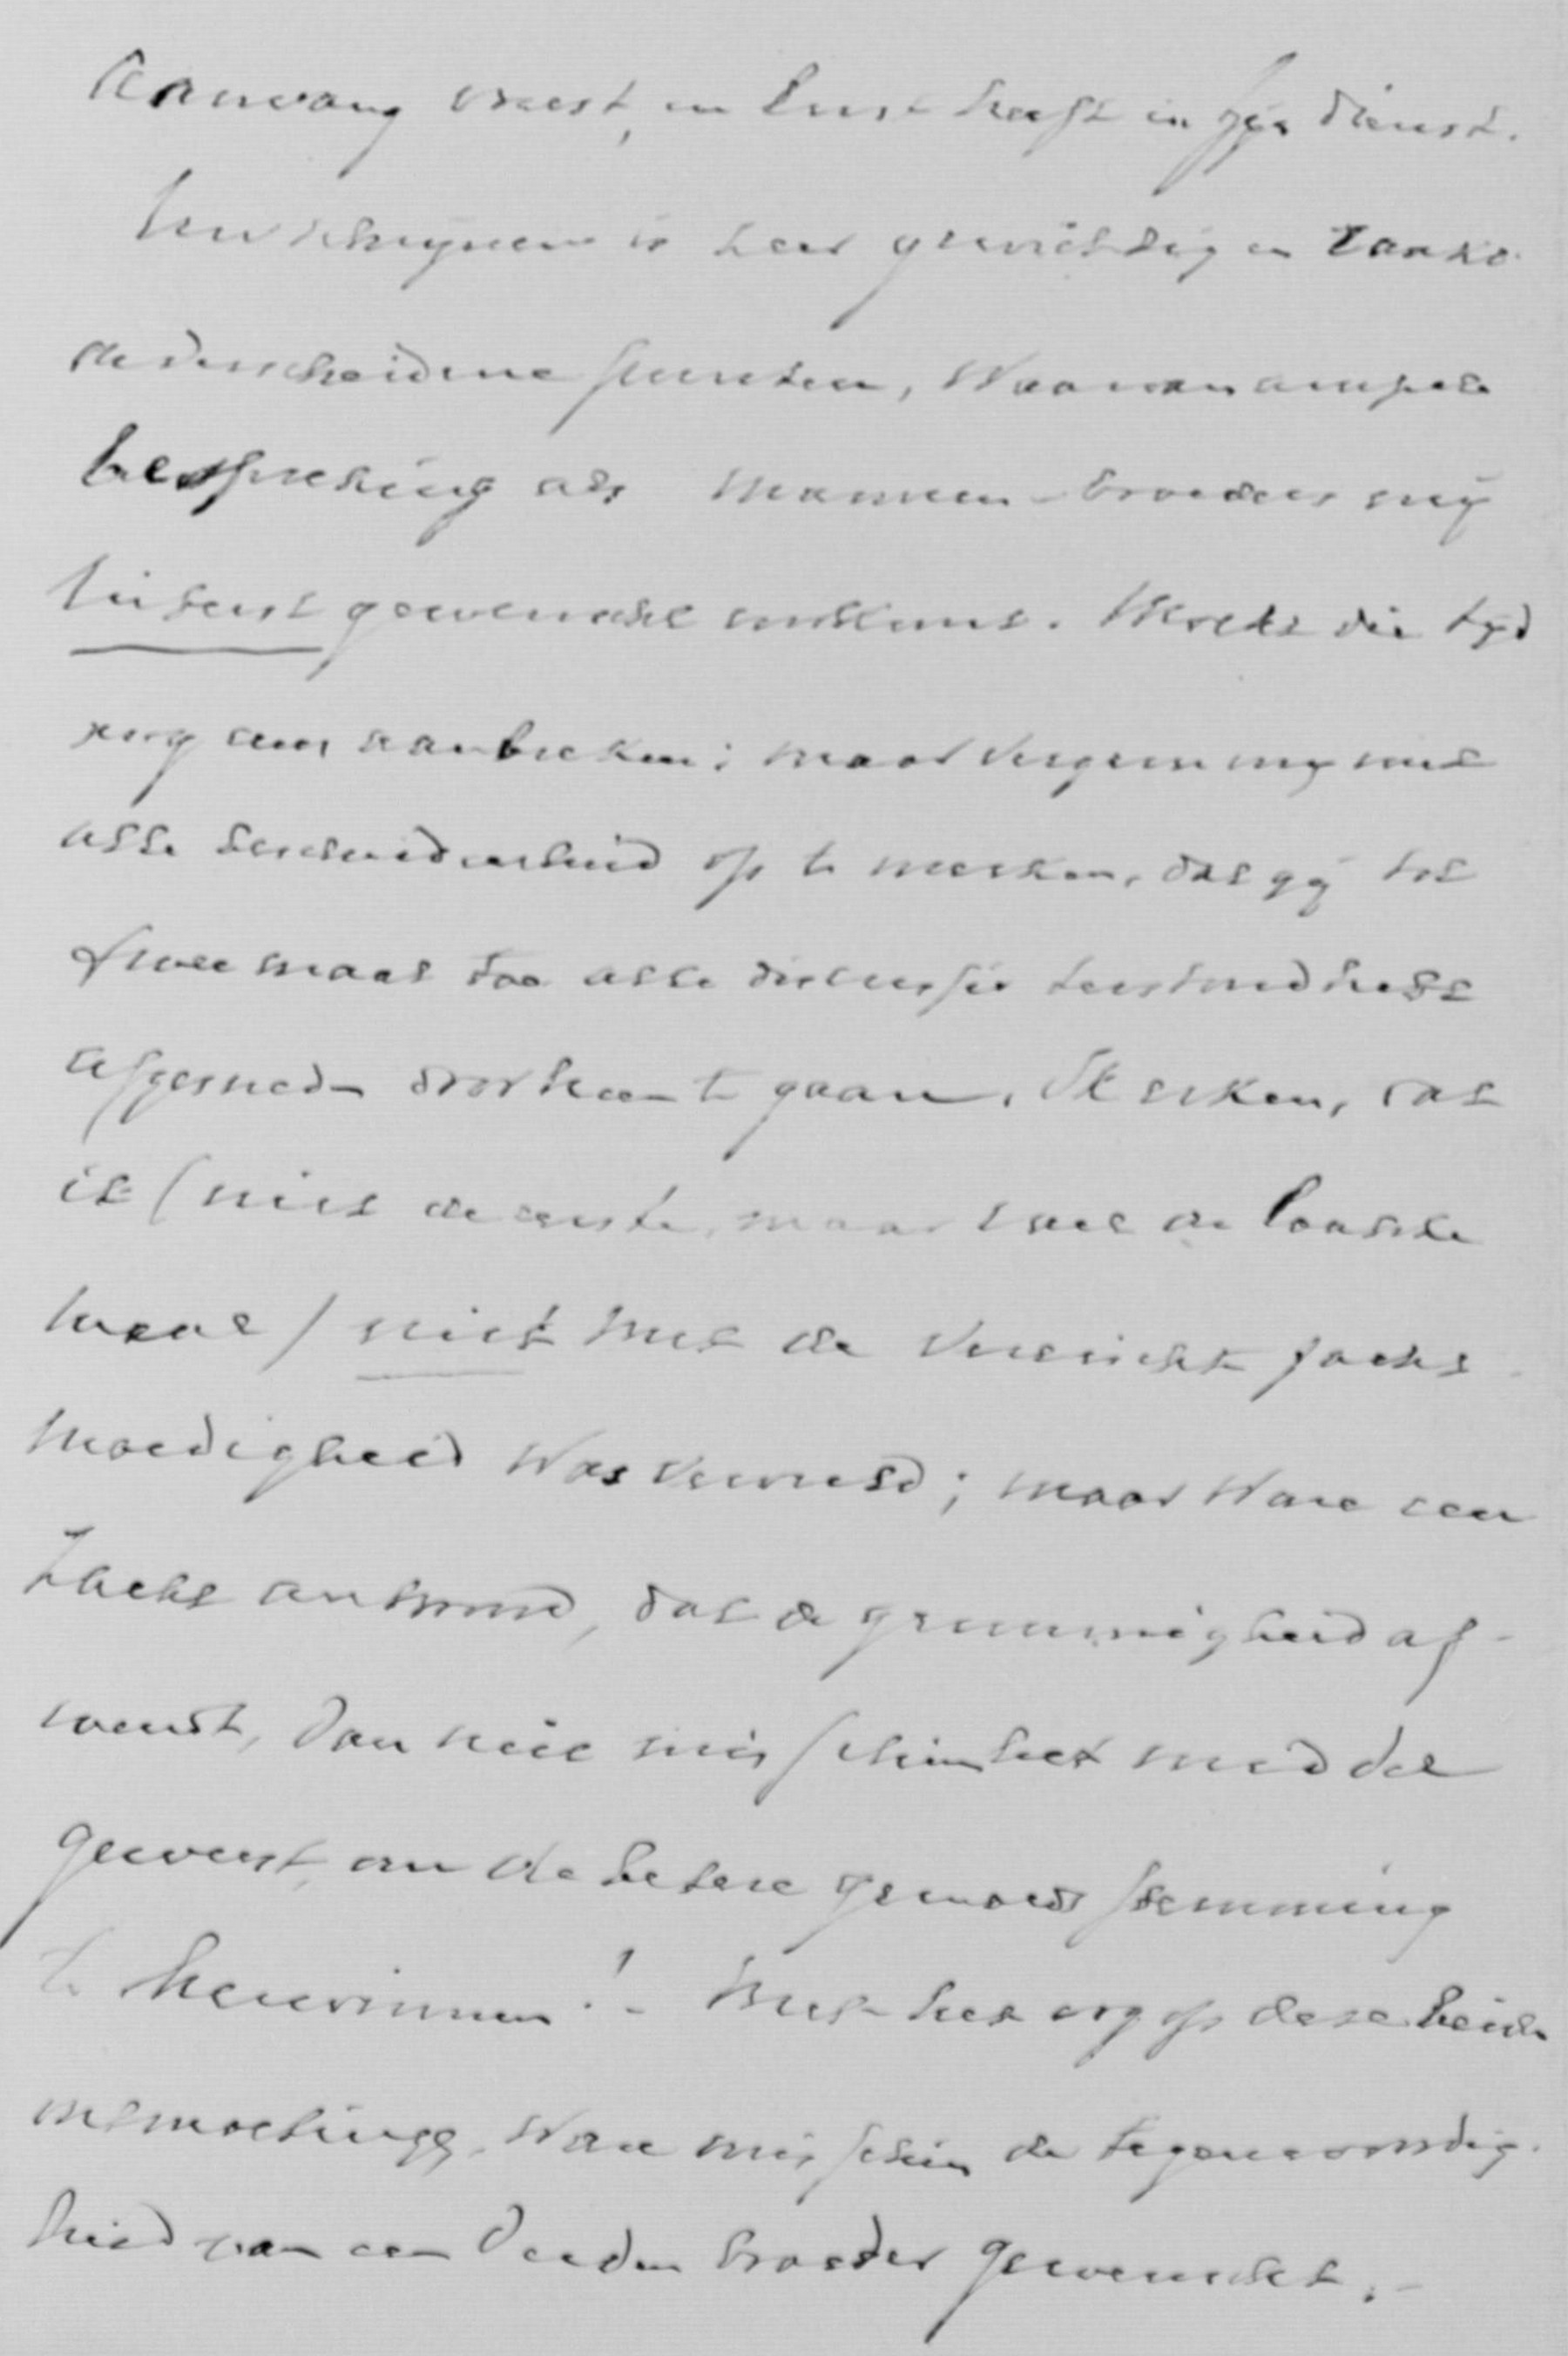 aanvang vreest, en lust heeft in zijn dienst.
Uw schrijven is zeer gewichtig en raakt
de verscheidene punten, waarvan ampele
bespreking als mannen-broeders mij
hiterst gewenscht voorkomt. Mocht die tijd
nog eens aanbreken; maar vergun mij met
alle bescheidenheid op te merken, dat gij tot
tweemaal toe alle discussie hebt
afgesneden door heen te gaan. Ik erken, dat
ik (niet de eerste, maar wel de laatste
maal) niet met de vereischte zacht-
moedigheid was vervuld; maar ware een
zacht antwoord, dat de grimmigheid af-
wendt, dan niet misschien het middel
geweest, om de betere gemoedsstemming
te herwinnen! - Met het oog op deze beide
ontmoetingen, ware misschien de tegenwoordig-
heid van een derden broeder gewenscht. -